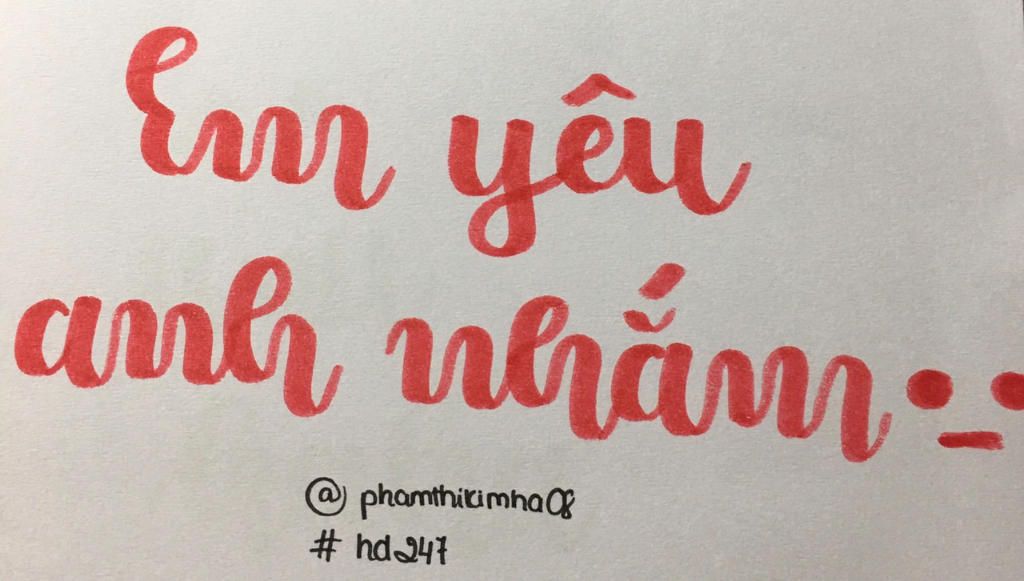 Em yêu
anh nhắm ._.
@phamthikimha08
#hd247